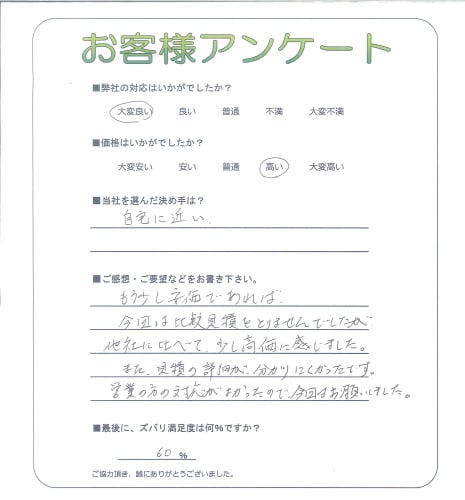 お客様アンケート
■弊社の対応はいかがでしたか？
大変良い 良い 普通 不満 大変不満
■価格はいかがでしたか？
大変安い 安い 普通 高い 大変高い
■当社を選んだ決め手は？
自宅に近い.
■ご感想・ご要望などをお書き下さい。
もう少し安価であれば.
今回は比較見積をとりませんでしたが
他社に比べて、少し高価に感じました。
また、見積の詳細が、分かりにくかったです。
営業の方の対応がよかったので今回はお願いしました。
■最後に、ズバリ満足度は何%ですか？
60 %
ご協力頂き、誠にありがとうございました。